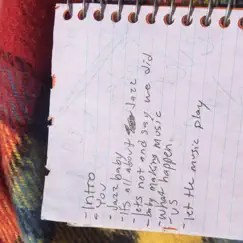 - Intro
- You
- Jazz baby
- It's all about Jazz
- lets not and say we did
- baby making music
- What happen
- US
- let the music play